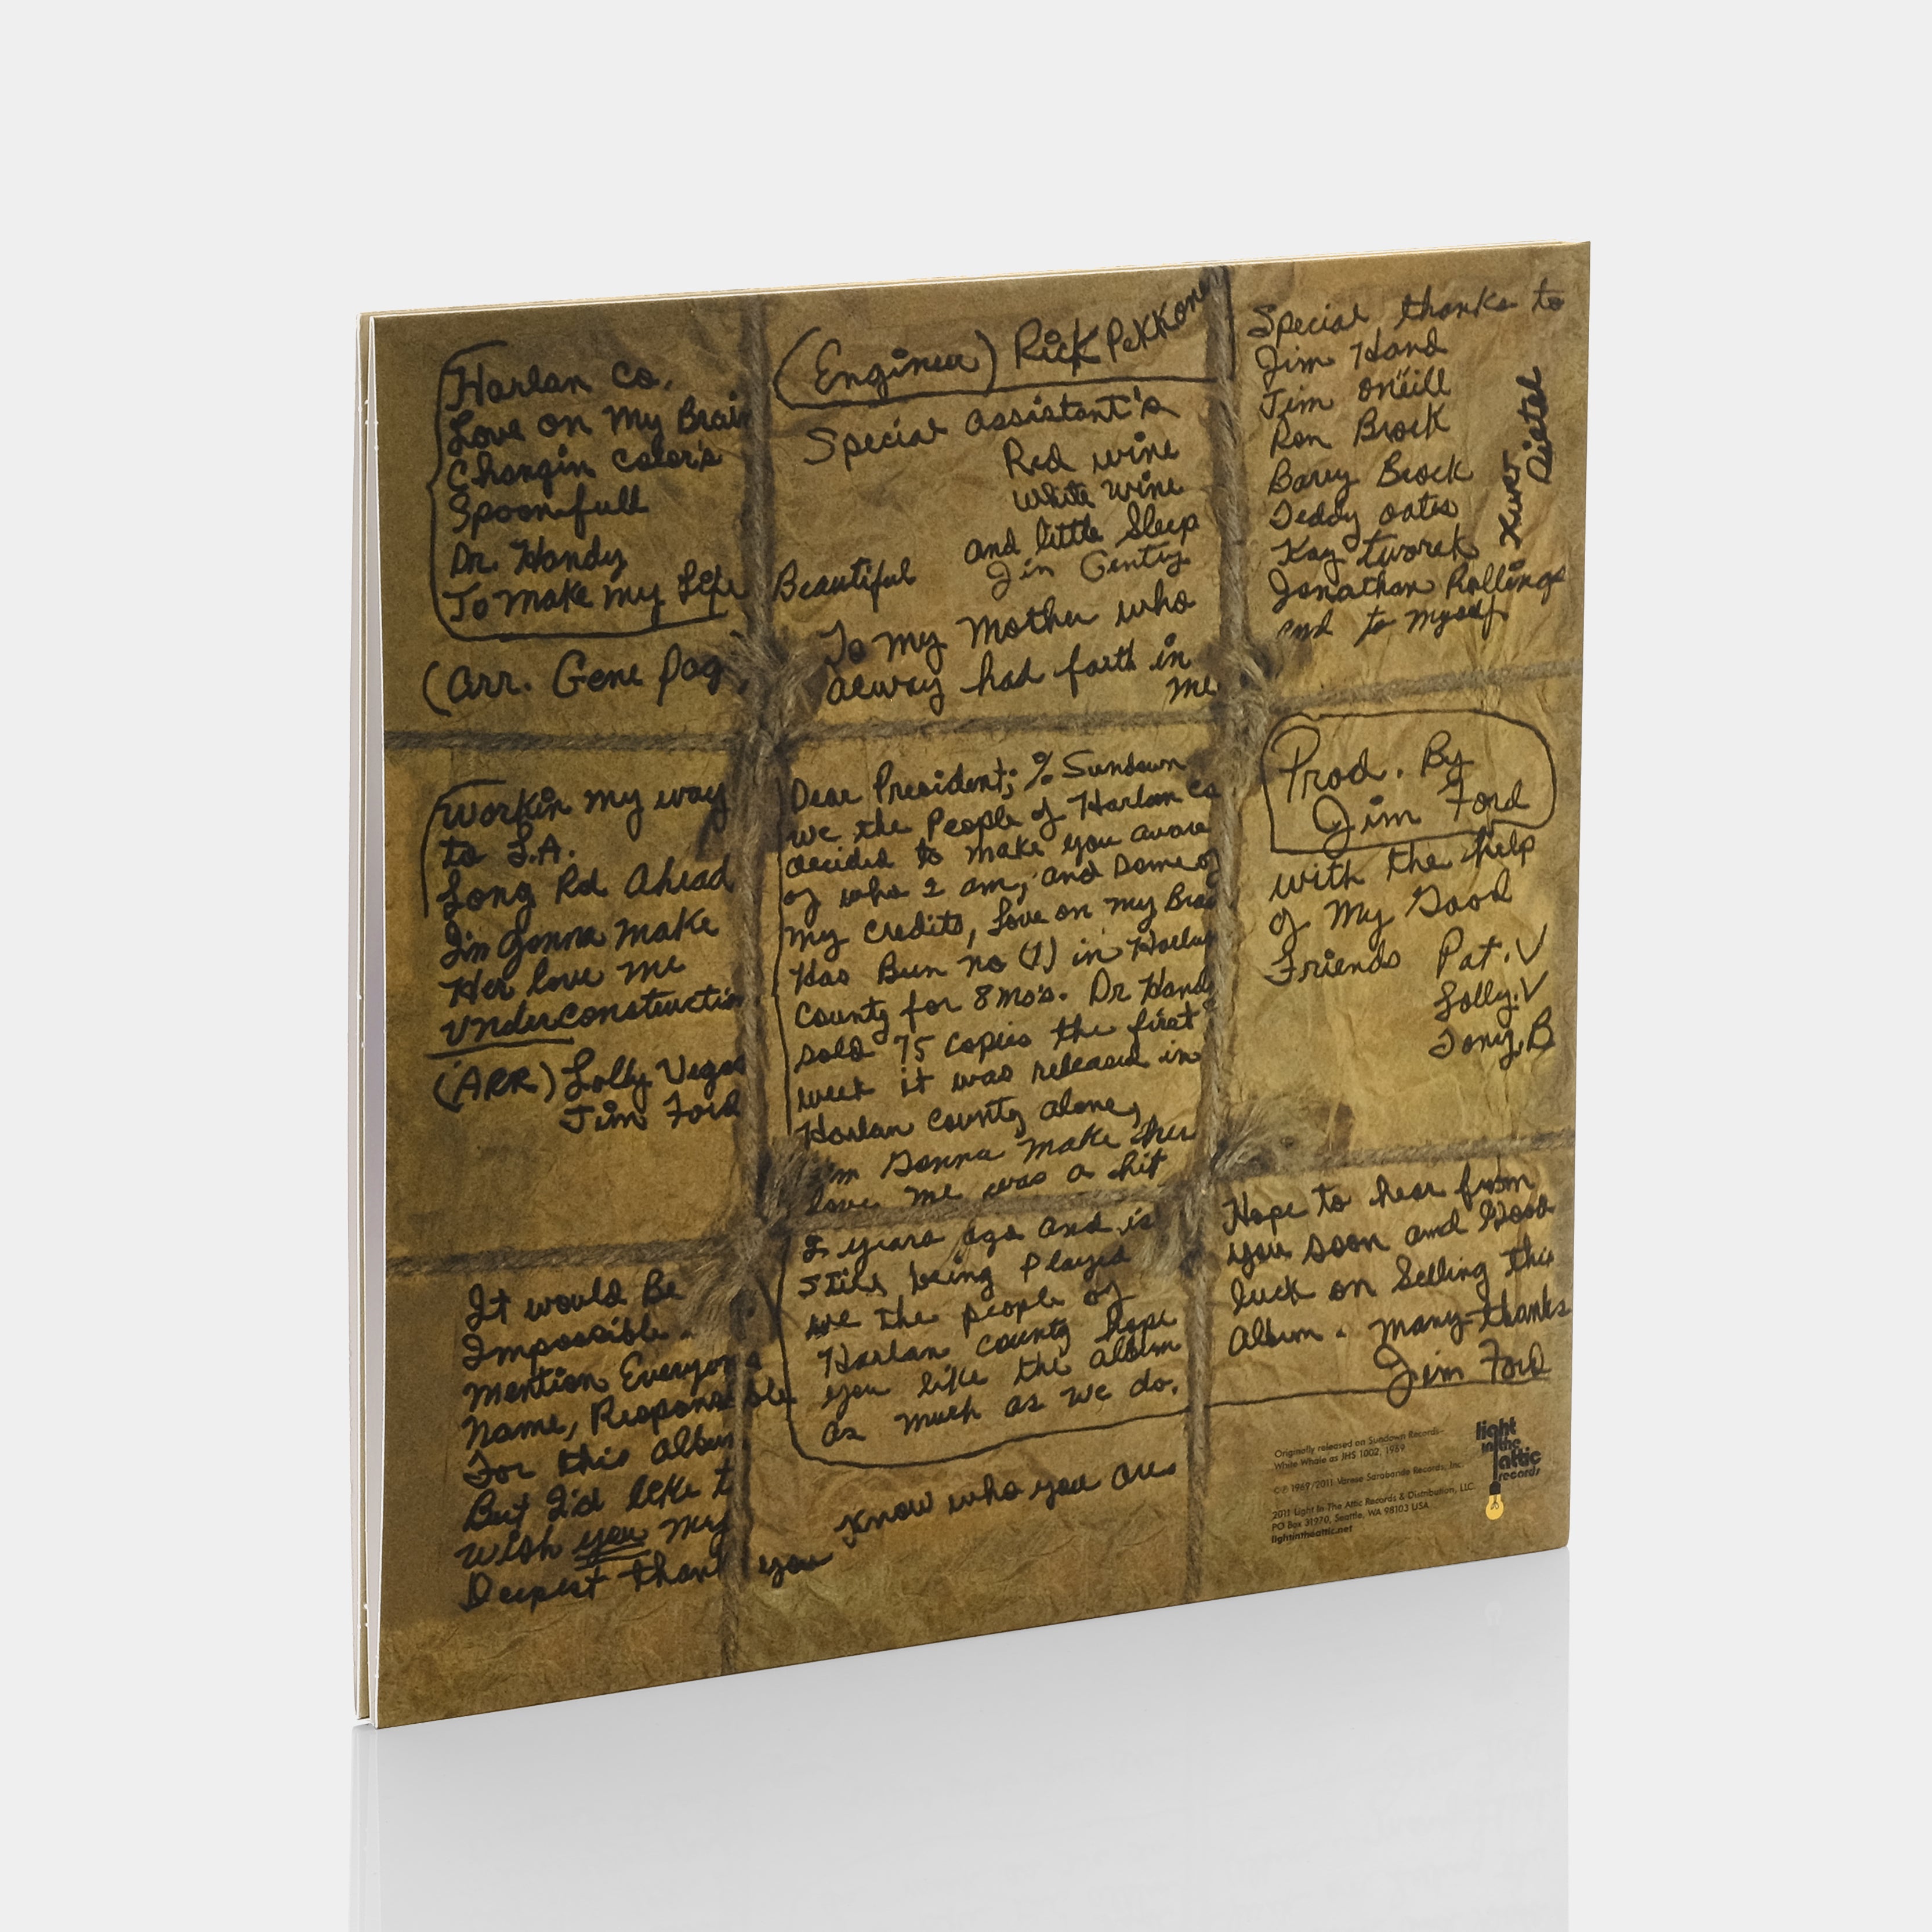 Harlan Co.
Love on My Brain
Changin Color's
Spoonfull
Dr. Handy
To Make my Life Beautiful
(Arr. Gene Pag
Workin my way
to L.A.
Long Rd Ahead
I'm Gonna Make
Her love me
UnderConstruction
(ARR) Lolly Vegas
Jim Ford
It would Be
Impossible
mention Everyone
Name, Responsible
For this album
But I'd like t
wish you my
Deepest thank you
Know who you are
(Engineer) Rick Pekkonen
Special assistant's
Red wine
White wine
and little Sleep
Jin Genty
To my Mother who
alway had faith in
me
Dear President; % Sundown
we the People of Harlan Co
decided to make you aware
of who I am, and some of
my credits, Love on my Brai
Has Bun no (1) in Harlan
County for 8 mo's. Dr Hand
sold 75 copies the first
week it was released in
Harlan County alone,
I'm Gonna Make Her
love me was a hit
2 years ago and is
still being played
we the people of
Harlan County hope
you like the album
as much as we do.
Special thanks to
Jim Hand
Jim oneill
Ron Brock
Barry Brock
Teddy oates
Kay tworek
Jonathan Rollings
and to myself
Prod. By
Jim Ford
with the help
of My Good
Friends Pat. V
Lolly. V
Tony. B
Hope to hear from
you soon and Good
luck on Selling this
Album. Many-thanks
Jim Ford
Originally released on Sundown Records–
White Whale as JHS 1002, 1969
©℗ 1969/2011 Varese Sarabande Records, Inc.
2011 Light In The Attic Records & Distribution, LLC.
PO Box 31970, Seattle, WA 98103 USA
lightintheattic.net
light
in the
attic
records